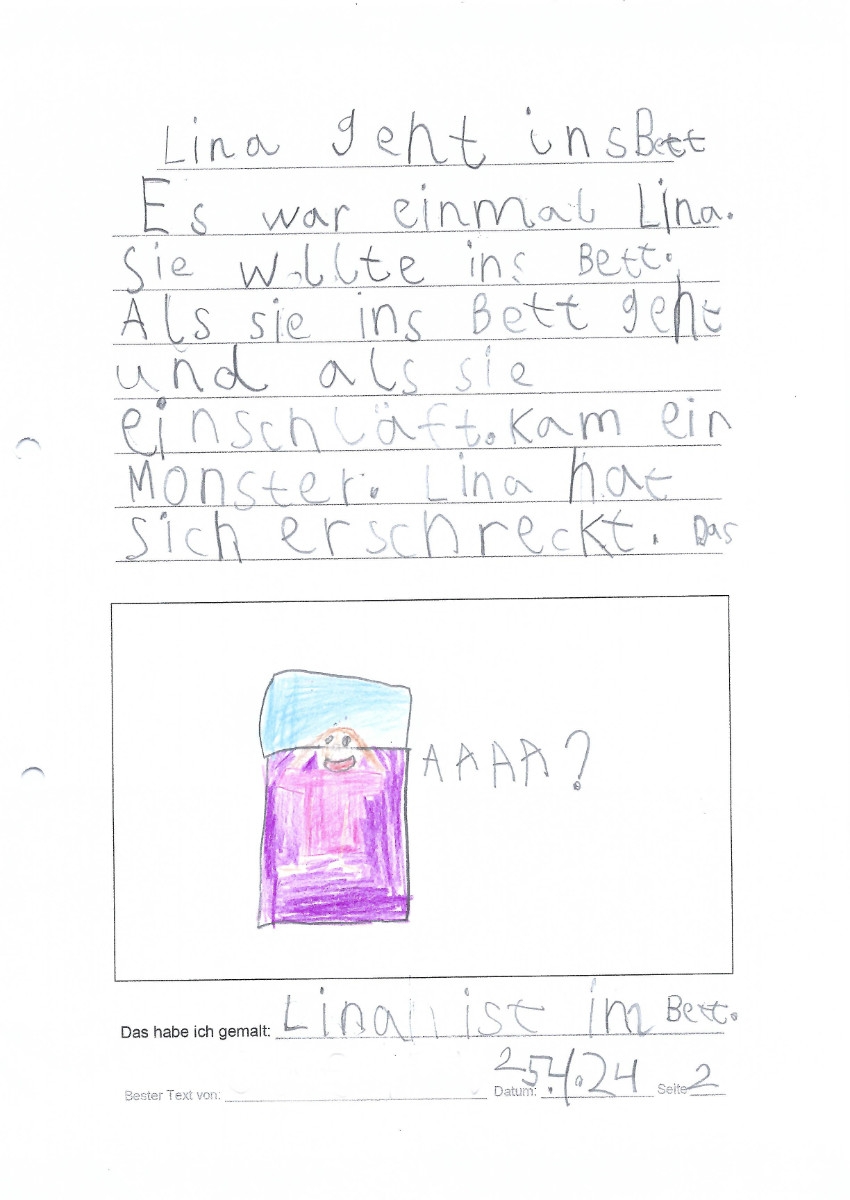 Lina geht ins Bett
Es war einmal Lina.
Sie wollte ins Bett.
Als sie ins Bett geht
und als sie
einschläft. Kam ein
Monster. Lina hat
sich erschreckt. Das
AAAA?
Das habe ich gemalt: Lina ist im Bett.
Bester Text von: Datum: 25.4.24 Seite 2